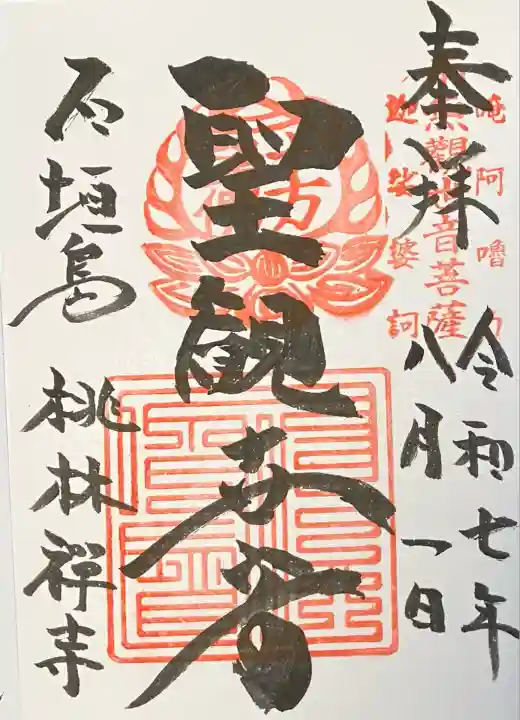 奉拝
令和七年
八月一日
唵阿嚕力
南無觀世音菩薩
迦娑婆訶
聖観世音
石垣島
桃林禅寺